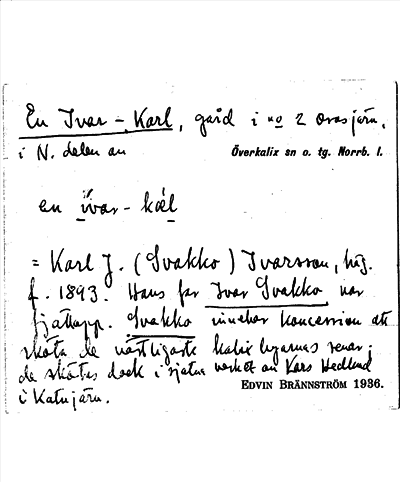 En Ivar-Karl, gård i no 2 Orrsjärn,
i N. delen av Överkalix sn o. tg. Norrb. l.
en ivar-kæl
= Karl J. (Svakko) Ivarsson, häg.
f. 1893. Hans far Ivar Svakko var
fjällapp. Svakko innehar koncession att
sköta de västligaste kalix byarnas renar;
de skötas dock i själva verket av Lars Hedlund
i Katijärn.
EDVIN BRÄNNSTRÖM 1936.